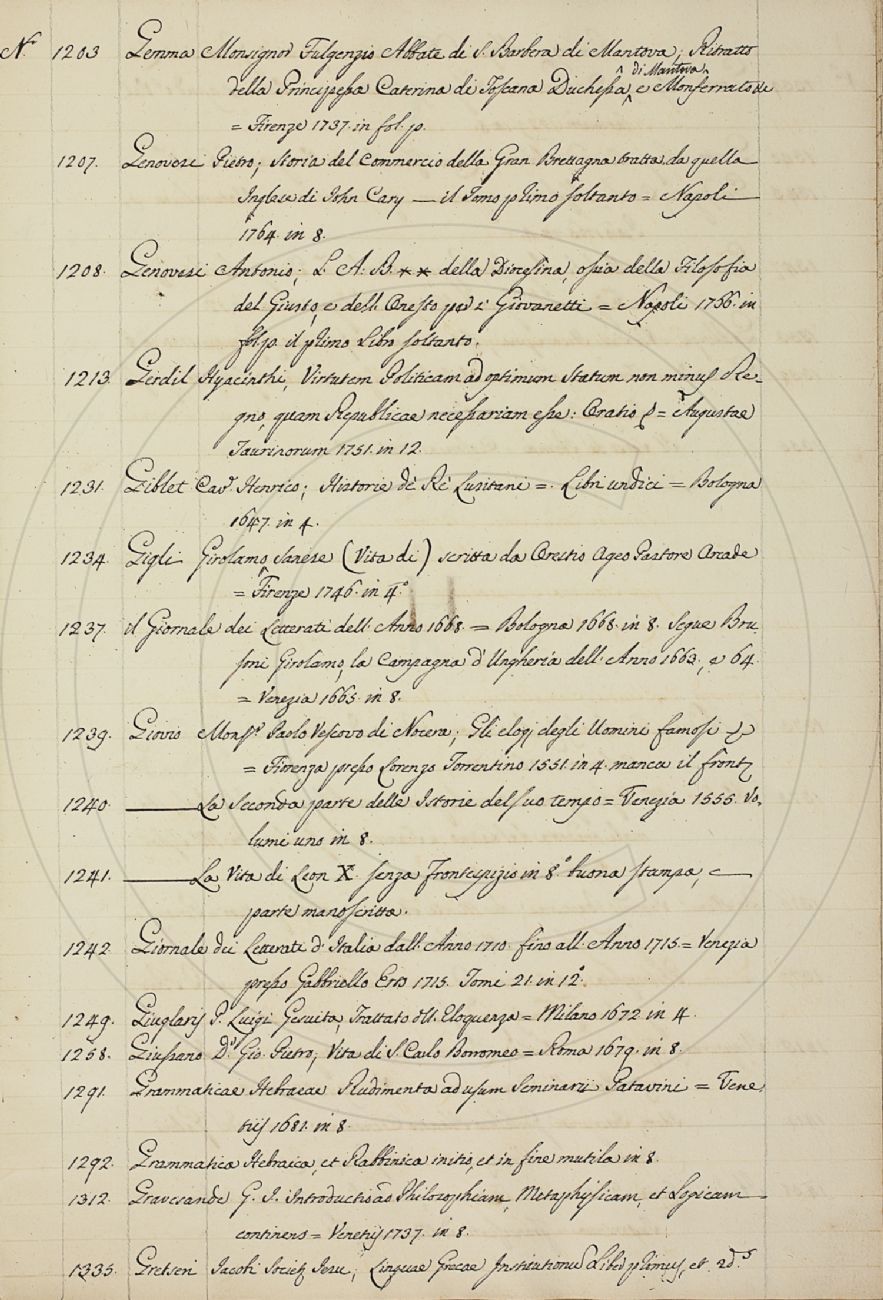 N.º 1203 Gemma Monsignor Fulgenzio Abbate di S. Barbera di Mantova; Ritratto
della Principessa Caterina di Toscana Duchessa di Mantova, e Monferrato &c
= Firenze 1737. in fol. p.
1207. Genovesi Pietro; Storia del Commercio della Gran Brettagna tratta da quella
Inglese di John Cary — il Tomo primo soltanto = Napoli
1764. in 8.
1208. Genovesi Antonio; L. A. B. ** della Diocesina, ossia della Filosofia
del Giusto, e dell Onesto per i Giovanetti = Napoli 1766. in
fol. p. il primo Libro soltanto.
1213. Gerdil Hyacinthi, Virtutem Politicam ad optimum Statum non minus Re-
gno, quam Republicae necessariam esse: Oratio = Augustae
Taurinorum 1751. in 12.
1231. Giblet Cav.r Henrico; Historie de Rè Lusitani = Libri undici = Bologna
1647. in 4.
1234. Gigli Girolamo Sanese (Vita di) scritta da Orestio Ageo Pastore Arcade
= Firenze 1746. in 4.º
1237. il Giornale dei Letterati dell Anno 1668. = Bologna 1668. in 8. Segue Bru-
soni Girolamo, la Campagna d'Ungheria dell Anno 1663, e 64.
= Venezia 1665. in 8.
1239. Giovio Mons.r Paolo Vescovo di Nocera; Gli elogj degli Uomini famosi
= Fiorenza presso Lorenzo Torrentino 1551. in 4. manca il front.
1240. ——— La Seconda parte delle Istorie del suo tempo = Venezia 1555. Vo-
lumi uno in 8.
1241. ——— La Vita di Leon X. senza frontespizio in 8.º buona stampa, e
parte manoscritta.
1242. Giornale dei Letterati d'Italia dall Anno 1710. fino all Anno 1715. = Venezia
presso Gabbriello Erts 1715. Tomi 21. in 12.º
1249. Giuglaris P. Luigi Gesuita, Trattato dell Eloquenza = Milano 1672. in 4.
1258. Giussano D.r Gio. Pietro; Vita di S. Carlo Borromeo = Roma 1679. in 8.
1291. Grammaticae Hebraeae Rudimenta ad usum Seminarii Patavini = Vene-
tiis 1681. in 8.
1292. Grammatica Hebraica, et Rabbinica initio, et in fine mutila in 8.
1312. Gravesande G. I. Introductio ad Philosophiam, Metaphysicam, et Logicam
continens = Venetiis 1737. in 8.
1335. Gretseri Jacobi Societ. Jesu; Linguae Grecae Institutionū Liber primus, et 2.dus